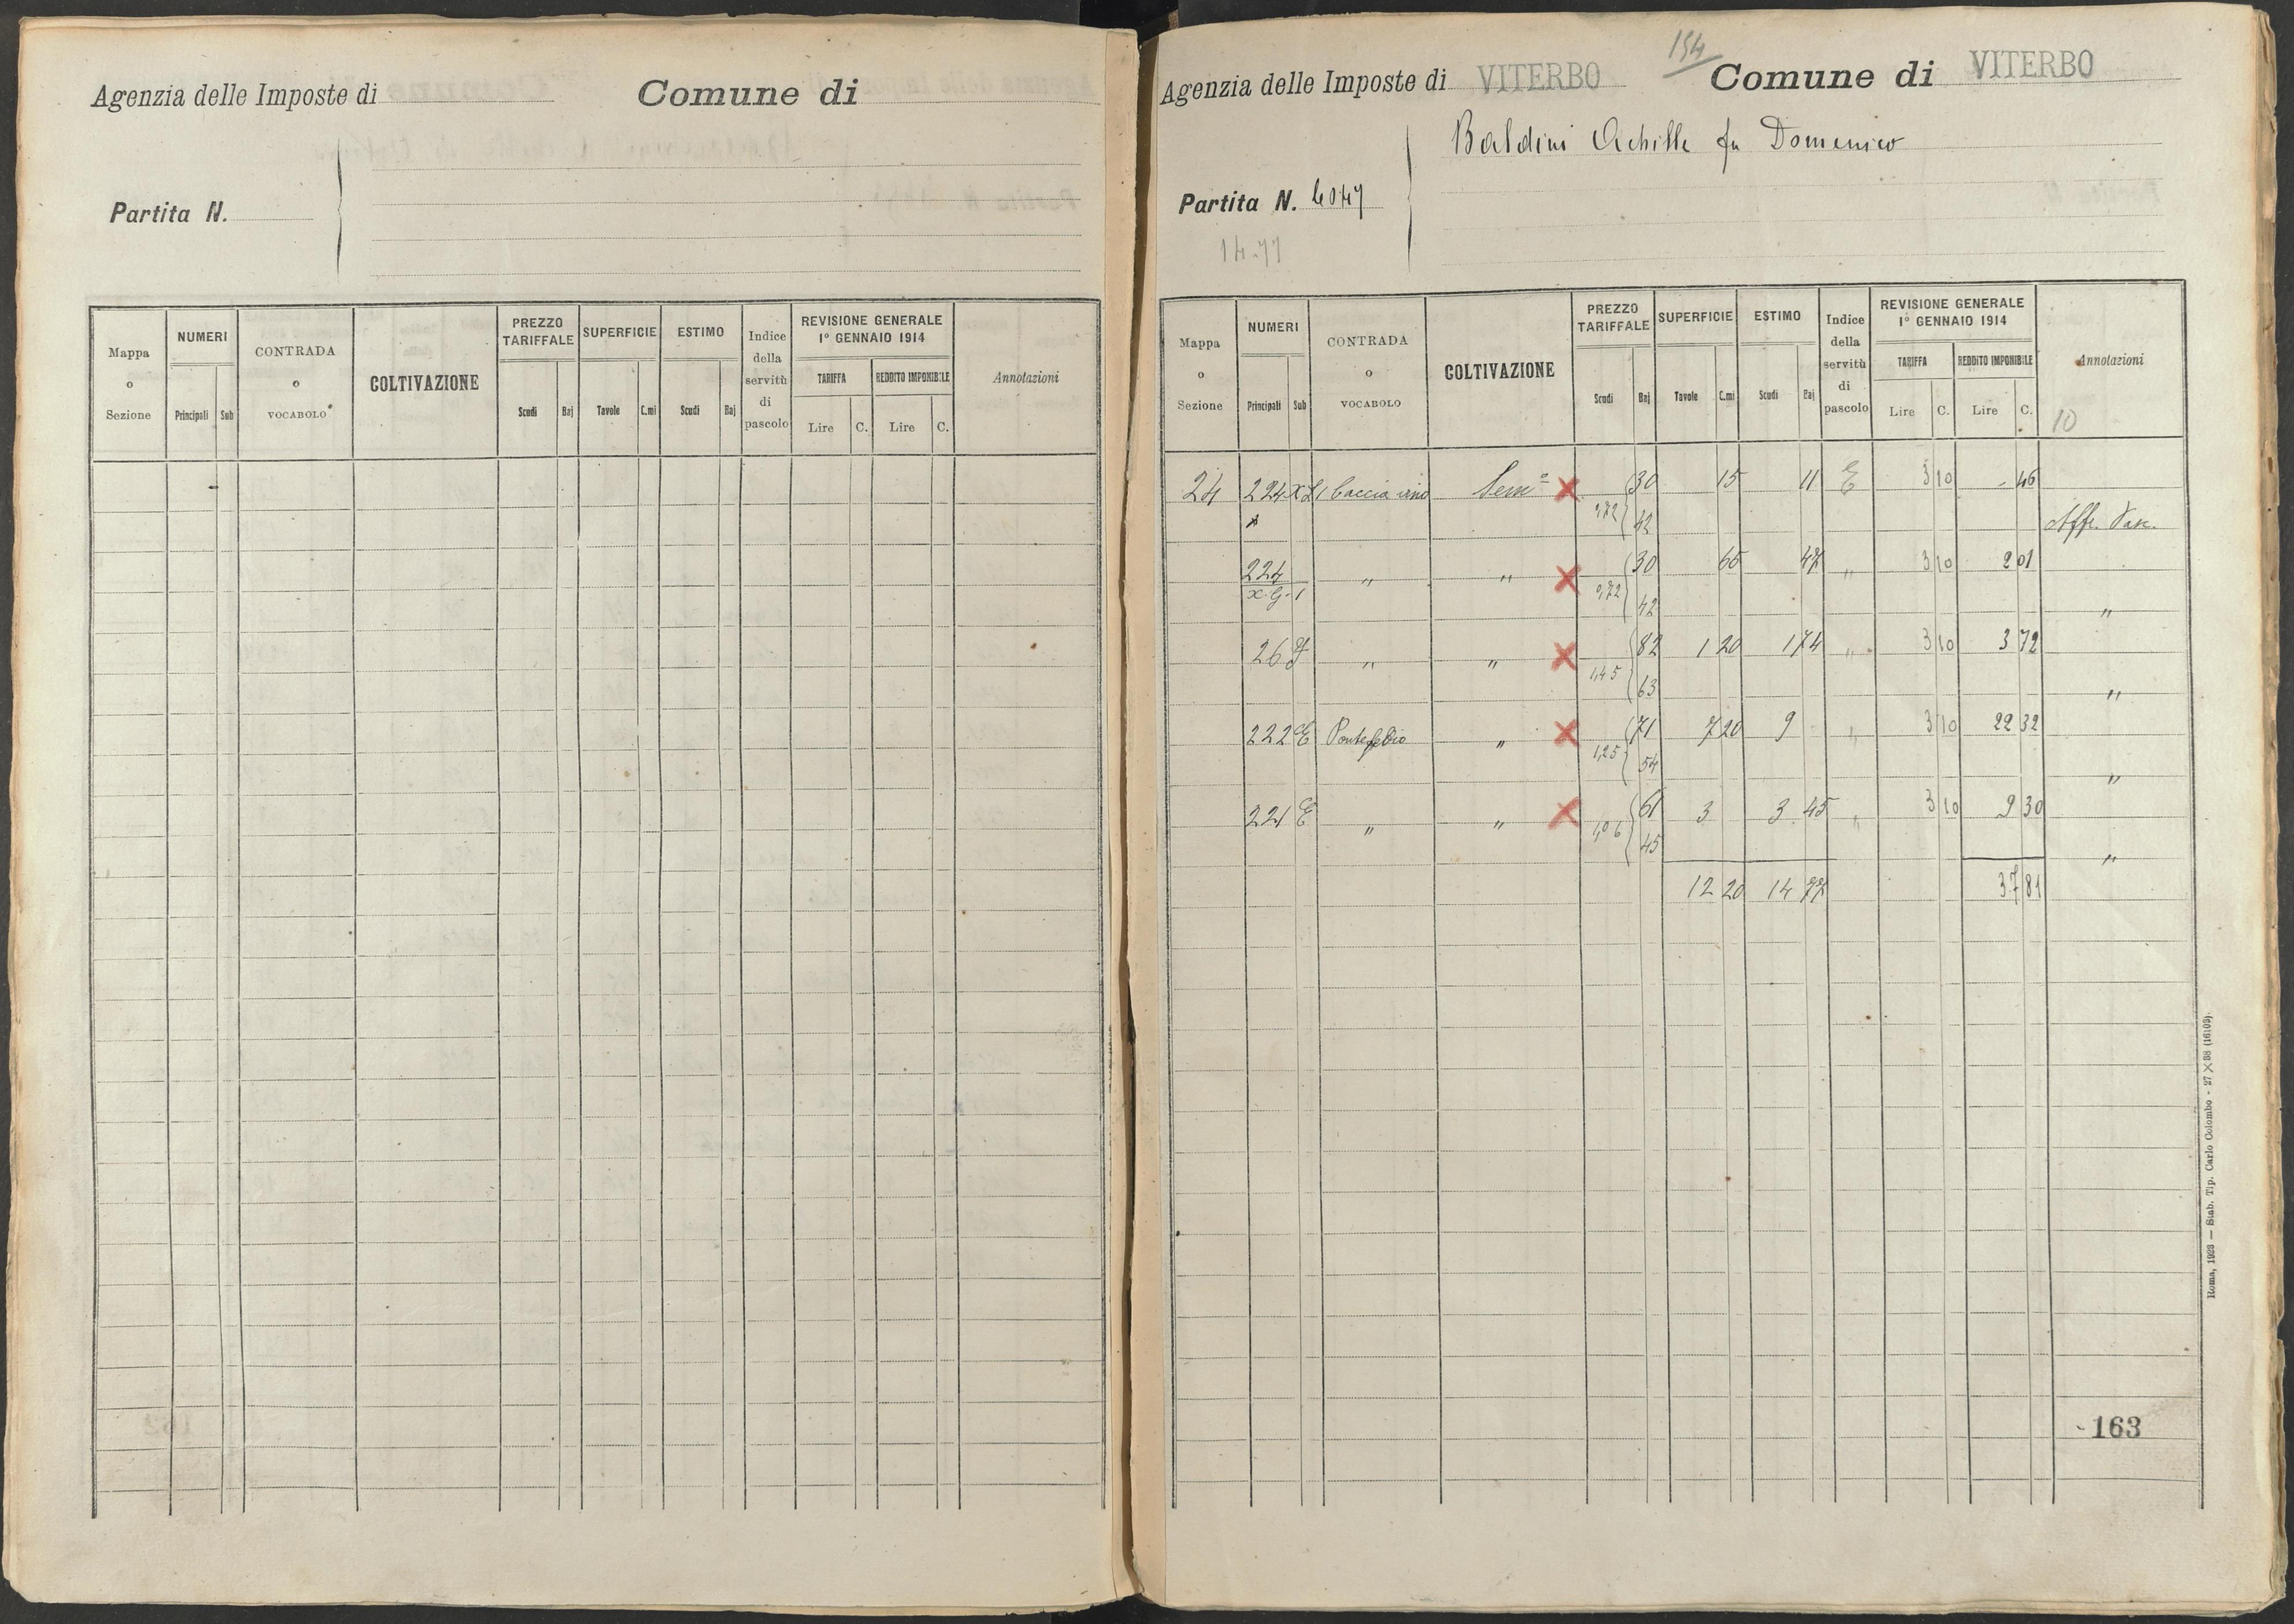 Agenzia delle Imposte di Comune di
Partita N.
Mappa o Sezione NUMERI Principali Sub CONTRADA o VOCABOLO COLTIVAZIONE PREZZO TARIFFALE Scudi Baj SUPERFICIE Tavole C.mi ESTIMO Scudi Baj Indice della servitù di pascolo REVISIONE GENERALE 1° GENNAIO 1914 TARIFFA Lire C. REDDITO IMPONIBILE Lire C. Annotazioni
194
Agenzia delle Imposte di VITERBO Comune di VITERBO
Baldini Achille fu Domenico
Partita N. 4047
14.77
Mappa o Sezione NUMERI Principali Sub CONTRADA o VOCABOLO COLTIVAZIONE PREZZO TARIFFALE Scudi Baj SUPERFICIE Tavole C.mi ESTIMO Scudi Baj Indice della servitù di pascolo REVISIONE GENERALE 1° GENNAIO 1914 TARIFFA Lire C. REDDITO IMPONIBILE Lire C. Annotazioni
10
24 224 Sem° 30 15 11 E 3 10 - 46
0,72 42 Aff. Pasc.
224 " " 30 65 47 " 3 10 2 01
x.G.1 0,72 42 "
26 " " 82 1 20 1 74 " 3 10 3 72
1,45 63 "
222 E " 71 7 20 9 " 3 10 22 32
1,25 54 "
221 E " " 61 3 3 45 " 3 10 9 30
1,06 45 "
12 20 14 77 37 81
163
Roma, 1923 — Stab. Tip. Carlo Colombo - 27 × 38 (16109).